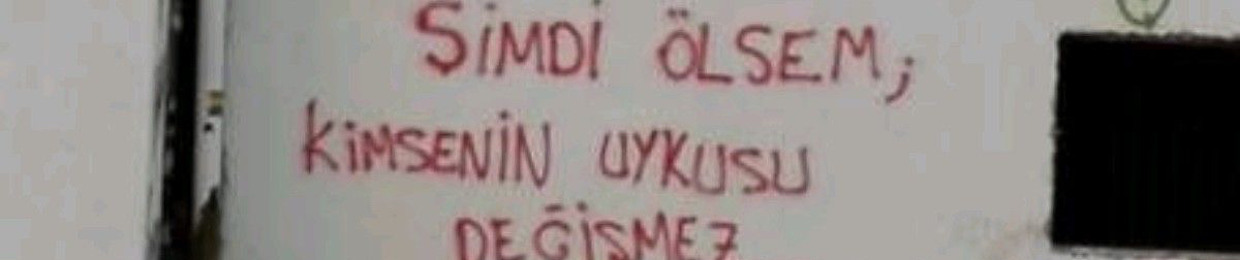 SİMDİ ÖLSEM;
KİMSENİN UYKUSU
DEĞİŞMEZ